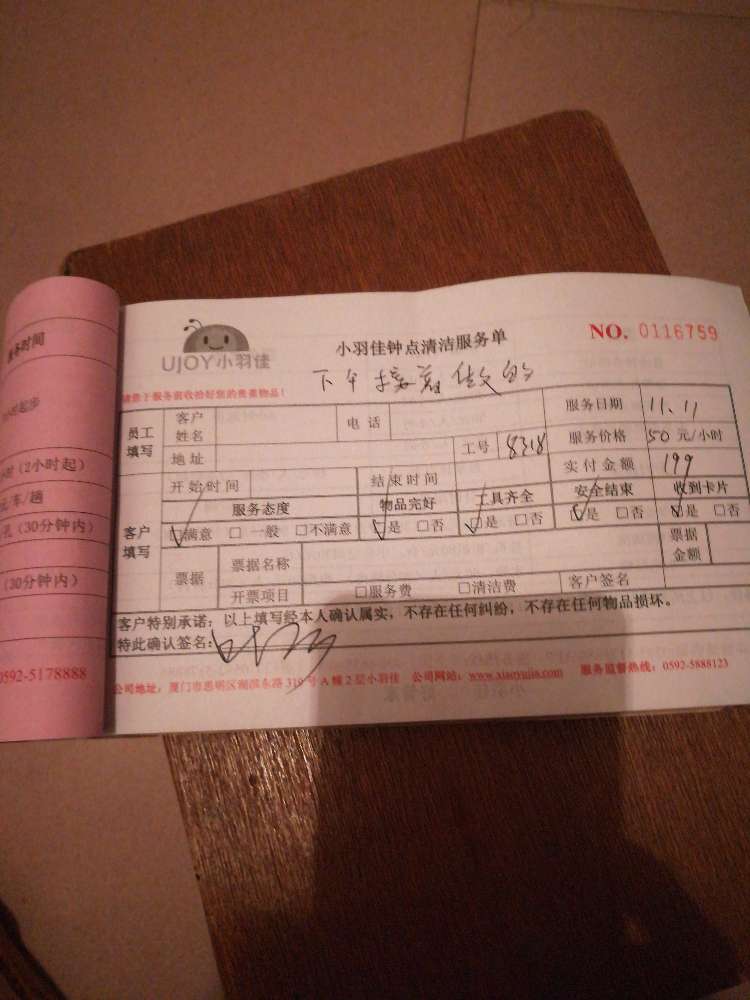 服务时间
小时(2小时起)
元/车/趟
孔(30分钟内)
(30分钟内)
0592-5178888
UJOY小羽佳
小羽佳钟点清洁服务单
NO. 0116759
下午
做的
请您于服务前收拾好您的贵重物品!
员工填写
客户姓名
电话
服务日期 11.11
地址
工号 8318
服务价格 50 元/小时
开始时间
结束时间
实付金额 199
客户填写
服务态度
物品完好
工具齐全
安全结束
收到卡片
☑满意 □一般 □不满意
☑是 □否
☑是 □否
☑是 □否
☑是 □否
票据
票据名称
票据金额
开票项目
□服务费 □清洁费
客户签名
客户特别承诺:以上填写经本人确认属实,不存在任何纠纷,不存在任何物品损坏。
特此确认签名:
公司地址:厦门市思明区湖滨东路319号A幢2层小羽佳 公司网站:www.xiaoyujia.com 服务监督热线:0592-5888123